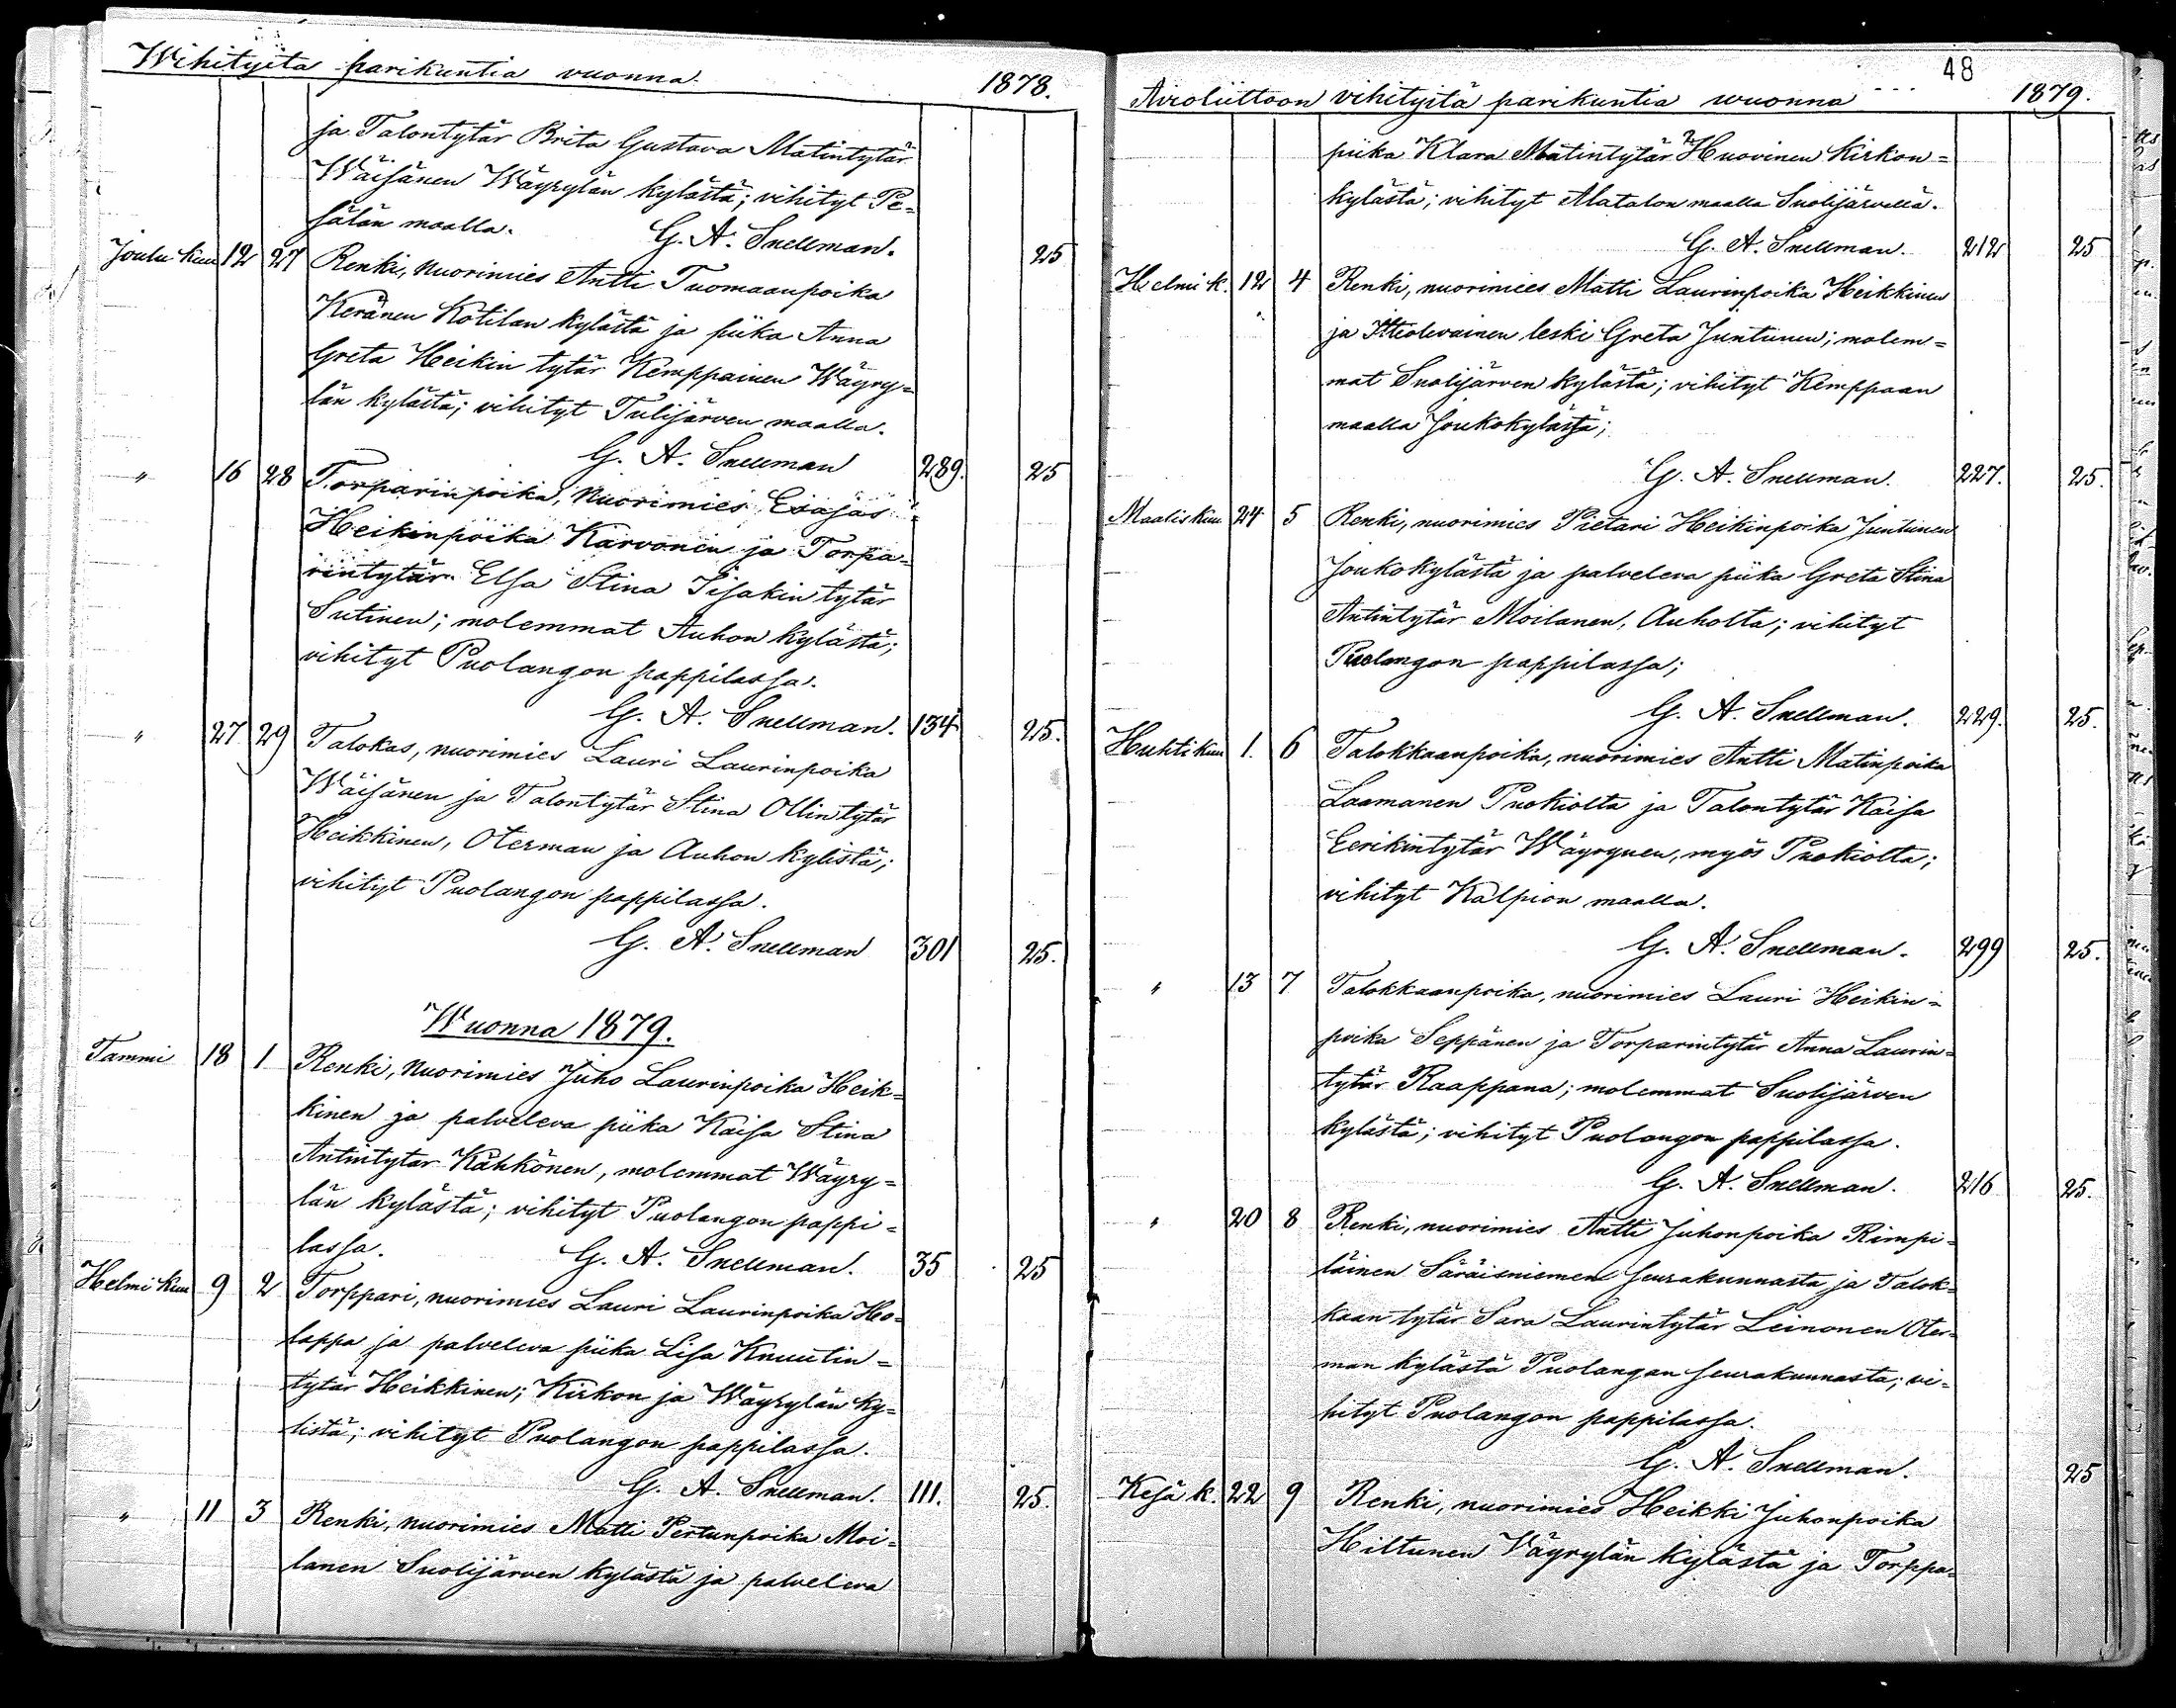 Wihityitä parikuntia vuonna 1878.
ja Talontytär Brita Gustava Matintytär
Wäisänen Wäyrylän kylästä; vihityt Pe=
sälän maalla. G. A. Snellman. 25
Joulu kuu 12 27 Renki, nuorimies Antti Tuomaanpoika
Keränen Kotilan kylästä ja piika Anna
Greta Heikin tytär Kemppainen Wäyry=
län kylästä; vihityt Tulijärven maalla.
G. A. Snellman 289. 25
" 16 28 Torparinpoika, nuorimies Esajas
Heikinpoika Karvonen ja Torpa=
rintytär Elsa Stina Iisakin tytär
Sutinen; molemmat Auhon kylästä;
vihityt Puolangon pappilassa.
G. A. Snellman. 134 25.
" 27 29 Talokas, nuorimies Lauri Laurinpoika
Wäisänen ja Talontytär Stina Ollin tytär
Heikkinen, Oterman ja Auhon kylistä;
vihityt Puolangon pappilassa.
G. A. Snellman 301 25.
Wuonna 1879.
Tammi 18 1 Renki, nuorimies Juho Laurinpoika Heik=
kinen ja palveleva piika Kaisa Stina
Antintytar Kähkönen, molemmat Wäyry=
län kylästä; vihityt Puolangon pappi=
lassa. G. A. Snellman. 35 25
Helmi kuu 9 2 Torppari, nuorimies Lauri Laurinpoika Ho=
lappa ja palveleva piika Lisa Knuutin=
tytär Heikkinen; Kirkon ja Wäyrylän ky=
listä; vihityt Puolangon pappilassa.
G. A. Snellman. 111. 25.
" 11 3 Renki, nuorimies Matti Pertunpoika Moi=
lanen Suolijärven kylästä ja palveleva
48
Avioliittoon vihityitä parikuntia wuonna 1879.
piika Klara Matintytär Huovinen Kirkon=
kylästä; vihityt Alatalon maalla Suolijärvellä.
G. A. Snellman. 212 25
Helmi k. 12 4 Renki, nuorimies Matti Laurinpoika Heikkinen
ja Itteolevainen leski Greta Juntunen; molem=
mat Suolijärven kylästä; vihityt Kemppaan
maalla Joukokylästä;
G. A. Snellman. 227. 25.
Maaliskuu 24 5 Renki, nuorimies Pietari Heikinpoika Juntunen
Joukokylästä ja palveleva piika Greta Stina
Antintytär Moilanen, Auholta; vihityt
Puolangon pappilassa;
G. A. Snellman. 229. 25.
Huhtikuu 1. 6 Talokkaanpoika, nuorimies Antti Matinpoika
Laamanen Puokiolta ja Talontytär Kaisa
Eerikintytär Wäyrynen, myös Puokiolta;
vihityt Kalpion maalla.
G. A. Snellman. 299 25.
" 13 7 Talokkaanpoika, nuorimies Lauri Heikin=
poika Seppänen ja Torparintytär Anna Laurin=
tytär Raappana; molemmat Suolijärven
kylästä; vihityt Puolangon pappilassa.
G. A. Snellman. 216 25.
" 20 8 Renki, nuorimies Antti Juhonpoika Rimpi=
läinen Säräisniemen seurakunnasta ja Talok=
kaan tytär Sara Laurintytär Leinonen Oter=
man kylästä Puolangan seurakunnasta; vi=
hityt Puolangon pappilassa.
G. A. Snellman. 25
Kesä k. 22 9 Renki, nuorimies Heikki Juhonpoika
Hiltunen Väyrylän kylästä ja Torppa=